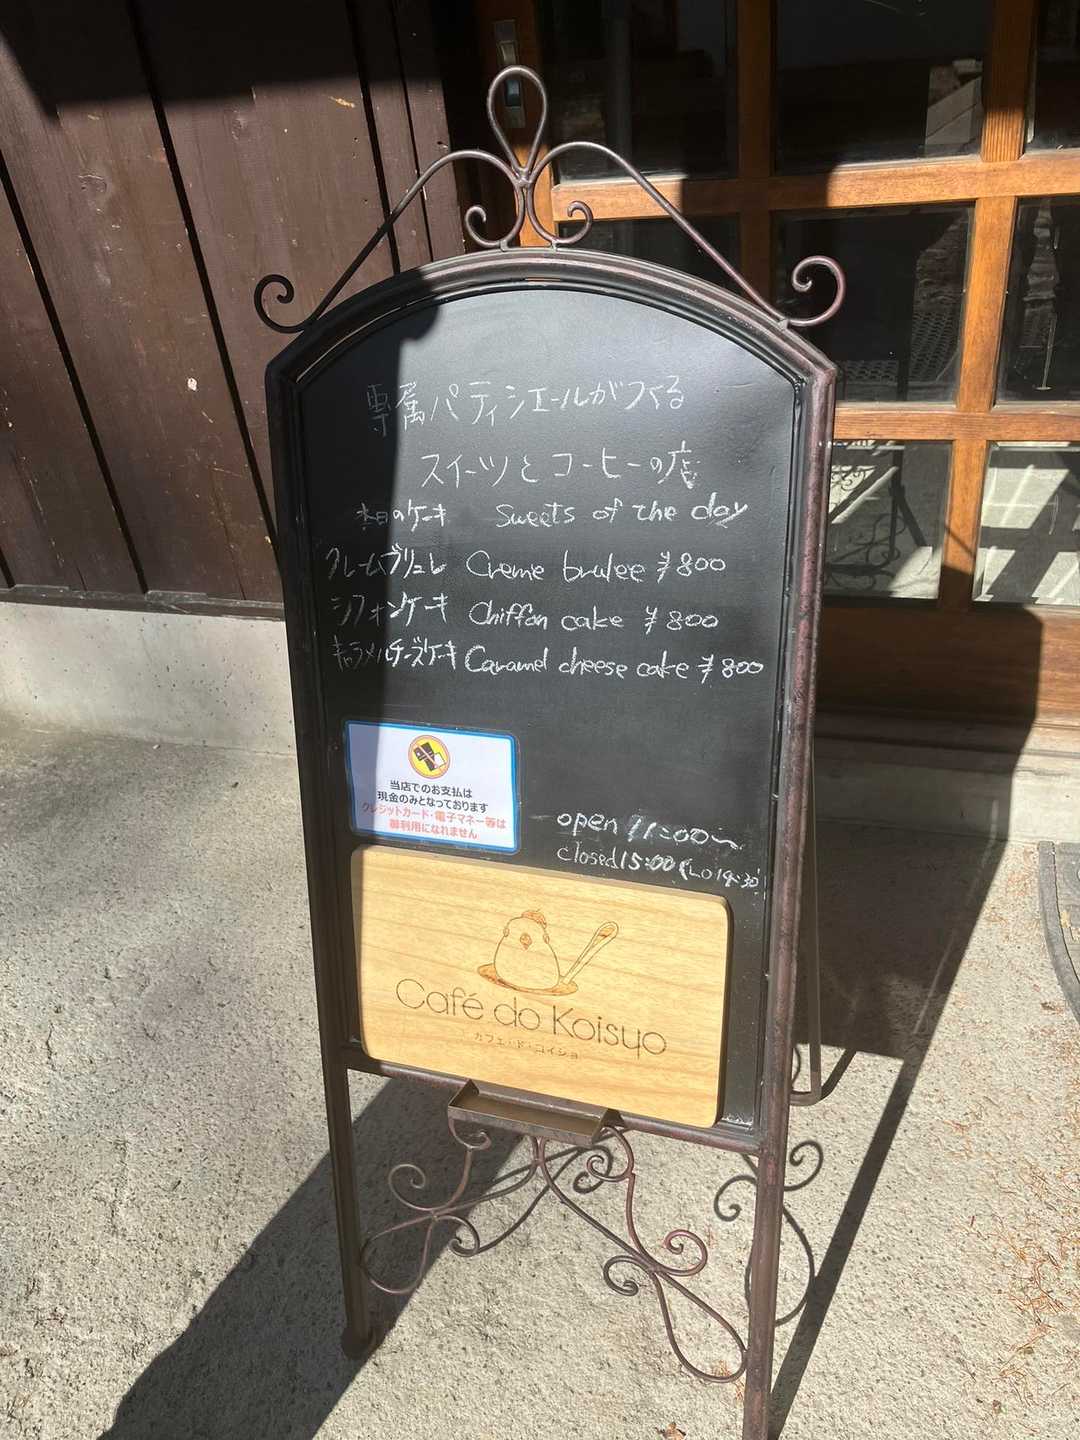 専属パティシエールがつくる
スイーツとコーヒーの店
本日のケーキ Sweets of the day
クレームブリュレ Creme brulee ¥800
シフォンケーキ Chiffon cake ¥800
キャラメルチーズケーキ Caramel cheese cake ¥800
当店でのお支払は
現金のみとなっております
クレジットカード・電子マネー等は
御利用になれません
open 11:00〜
closed 15:00 (LO 14:30)
Café do Koisyo
カフェ・ド・コイショ